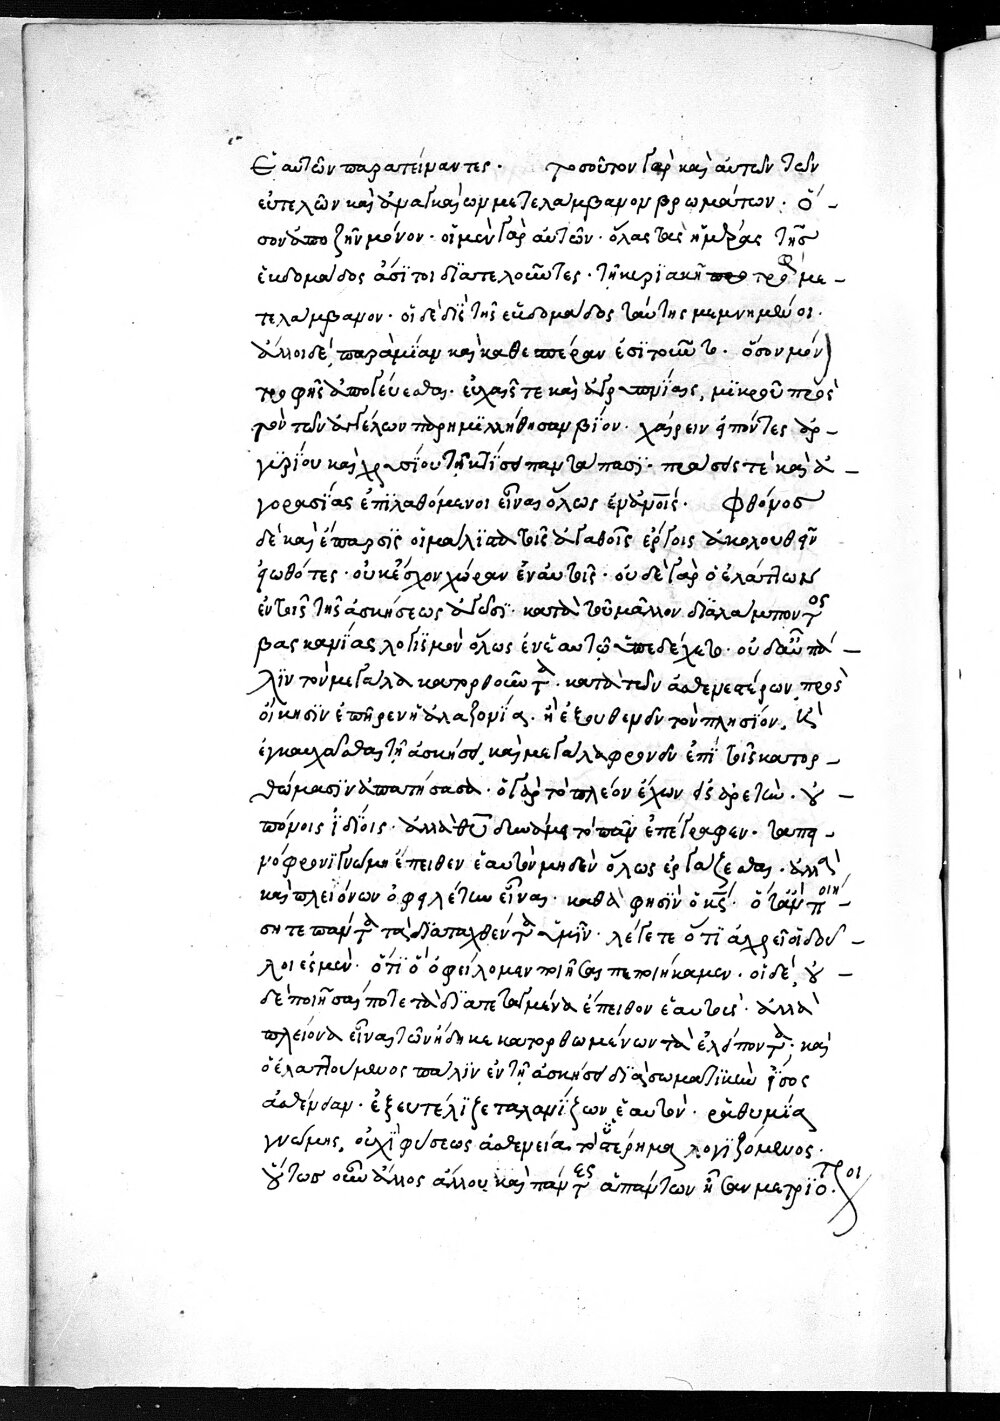 ἑαυτῶν παραπέμψαντες. τοσοῦτον γὰρ καὶ αὐτῶν τῶν
εὐτελῶν καὶ ἀναγκαίων μετελάμβανον βρωμάτων. ὅ-
σον ἀποζῆν μόνον. οἱ μὲν γὰρ αὐτῶν. ὅλας τὰς ἡμέρας τῆς
ἑβδομάδος ἄσιτοι διατελοῦντες. τῇ κυριακῇ τροφῆς με-
τελάμβανον. οἱ δὲ δὶς τῆς ἑβδομάδος ταύτης μεμνημένοι.
ἄλλοι δὲ, παρὰ μίαν καὶ καθεσπέραν ἐσιτοῦντο. ὅσον μόν
τροφῆς ἀπογεύεσθαι. εὐχαῖς τε καὶ ἀγρυπνίαις, μικροῦ πρὸς
τὸν τῶν ἀγγέλων παρημιλλήθησαν βίον. χαίρειν εἰπόντες ἀρ-
γυρίου καὶ χρυσίου τῇ κτίσει παντάπασι. πράσεώς τε καὶ ἀ-
γορασίας ἐπιλαθόμενοι εἶναι ὅλως ἐν ἀνοις. φθόνος
δὲ καὶ ἔπαρσις οἱ μάλιστα τοῖς ἀγαθοῖς ἔργοις ἀκολουθεῖν
εἰωθότες. οὐκ ἔσχον χώραν ἐν αὐτοῖς. οὐδὲ γὰρ ὁ ἐλάττων
ἐν τοῖς τῆς ἀσκήσεως ἀγῶσι. κατὰ τοῦ μᾶλλον διαλάμποντος
βασκανίας λογισμὸν ὅλως ἐν ἑαυτῷ ὑπεδέχετο. οὐδ αὖ πά-
λιν τὸν μεγάλα κατορθοῦντα. κατὰ τῶν ἀσθενεστέρων, πρὸς
οἴκησιν ἐπῆρεν ἡ ἀλαζονία. ἢ ἐξουθενῶν τὸν πλησίον, καὶ
ἐγκαυχᾶσθαι τῇ ἀσκήσει, καὶ μεγαλαφρονῶν ἐπὶ τοῖς κατορ-
θώμασιν ἀπατήσασα. ὁ γὰρ τὸ πλέον ἔχων εἰς ἀρετὴν. οὐ
πόνοις ἰδίοις. ἀλλὰ θυ δυνάμει τὸ πᾶν ἐπέγραφεν. ταπει-
νόφρονι γνώμη ἔπειθεν ἑαυτὸν μηδὲν ὅλως ἐργάζεσθαι. ἀλλὰ
καὶ πλειόνων ὀφειλέτην εἶναι. καθά φησὶν ὁ κς. ὅταν ποιή-
σητε πάντα τὰ διαταχθέντα ὑμῖν. λέγετε ὅτι ἀχρεῖοι δοῦ-
λοι ἐσμὲν. ὅτι ὃ ὀφείλομεν ποιῆσαι πεποιήκαμεν. οἱ δὲ, οὐ
δὲ ποιῆσαι ποτὲ τὰ διατεταγμένα ἔπειθον ἑαυτούς. ἀλλὰ
πλείονα εἶναι τῶν ἤδη κεκατορθωμένων τὰ ἐλλείποντα. καὶ
ὁ ἐλαττούμενος πάλιν ἐν τῇ ἀσκήσει διὰ σωματικὴν ἴσος
ἀσθένειαν. ἐξευτέλιζε ταλανίζων ἑαυτὸν. ῥαθυμία
γνώμης, οὐχὶ φύσεως ἀσθενεία τὸ ὑστέρημα λογιζόμενος.
οὕτως οὖν ἄλλος ἄλλου καὶ πάντες ἁπάντων ἦσαν μετριώτεροι